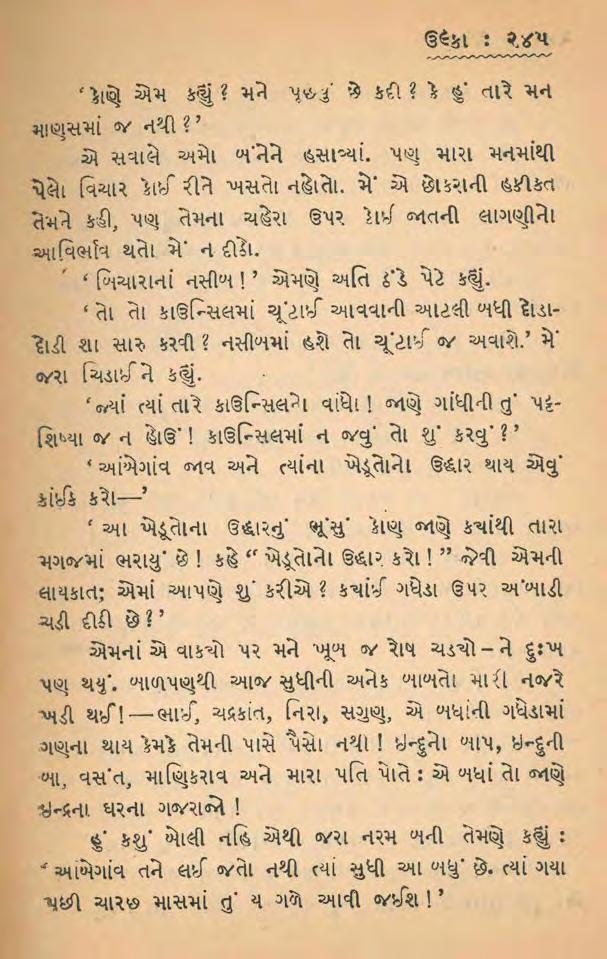 ઉલ્કા : ૨૪૫
‘કોણે એમ કહ્યું ? મને પૂછ્યું છે કદી ? કે હું તારે મન
માણસમાં જ નથી ?’
એ સવાલે અમો બંનેને હસાવ્યાં. પણ મારા મનમાંથી
પેલો વિચાર કોઈ રીતે ખસતો નહોતો. મેં એ છોકરાની હકીકત
તેમને કહી, પણ તેમના ચહેરા ઉપર કોઈ જાતની લાગણીનો
આવિર્ભાવ થતો મેં ન દીઠો.
‘ બિચારાનાં નસીબ !’ એમણે અતિ ઠંડે પેટે કહ્યું.
‘ તો તો કાઉન્સિલમાં ચૂંટાઈ આવવાની આટલી બધી દોડા-
દોડી શા સારુ કરવી ? નસીબમાં હશે તો ચૂંટાઈ જ અવાશે.’ મેં
જરા ચિડાઈને કહ્યું.
‘જ્યાં ત્યાં તારે કાઉન્સિલનો વાંધો ! જાણે ગાંધીની તું પટ્ટ-
શિષ્યા જ ન હોઉં ! કાઉન્સિલમાં ન જવું તો શું કરવું ?’
‘આંબેગાંવ જાવ અને ત્યાંના ખેડૂતોનો ઉદ્ધાર થાય એવું
કાંઈક કરો—’
‘ આ ખેડૂતોના ઉદ્ધારનું ભૂંસું કોણ જાણે ક્યાંથી તારા
મગજમાં ભરાયું છે ! કહે “ ખેડૂતોનો ઉદ્ધાર કરો ! ” જેવી એમની
લાયકાત; એમાં આપણે શું કરીએ ? ક્યાંઈ ગધેડા ઉપર અંબાડી
ચડી દીઠી છે ?’
એમનાં એ વાક્યો પર મને ખૂબ જ રોષ ચડ્યો – ને દુઃખ
પણ થયું. બાળપણથી આજ સુધીની અનેક બાબતો મારી નજરે
ખડી થઈ !—ભાઈ, ચંદ્રકાંત, નિરા, સગુણ, એ બધાંની ગધેડામાં
ગણના થાય કેમકે તેમની પાસે પૈસો નથી ! ઇન્દુનો બાપ, ઇન્દુની
બા, વસંત, માણિકરાવ અને મારા પતિ પોતે : એ બધાં તો જાણે
ઇન્દ્રના ઘરના ગજરાજો !
હું કશું બોલી નહિ એથી જરા નરમ બની તેમણે કહ્યું :
‘આંબેગાંવ તને લઈ જતો નથી ત્યાં સુધી આ બધું છે. ત્યાં ગયા
પછી ચારછ માસમાં તું ય ગળે આવી જઈશ !’